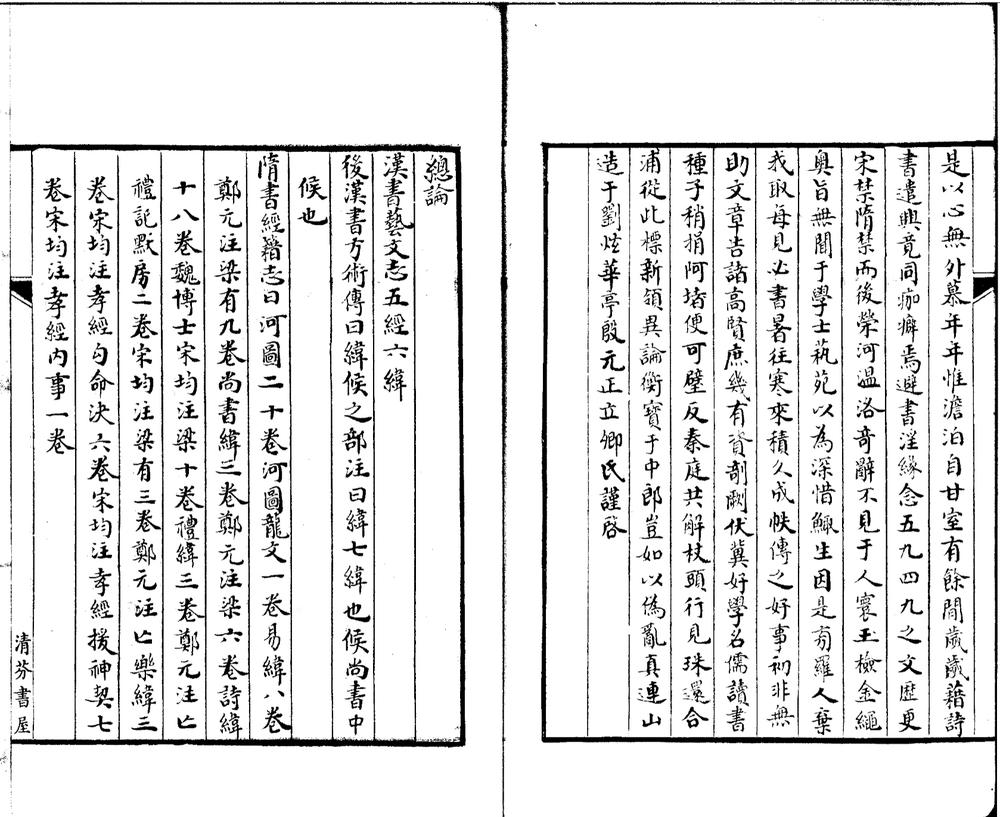 是以心無外慕年年惟澹泊自甘室有餘閒歲歲藉詩
書遣興竟同痂癖焉避書淫緣念五九四九之文歷更
宋禁隋禁而後榮河溫洛奇辭不見于人寰玉檢金繩
奧旨無聞于學士藝苑以為深惜鯫生因是旁羅人棄
我取每見必書暑往寒來積久成帙傳之好事初非無
助文章告諸高賢庶幾有資剞劂伏冀好學名儒讀書
種子稍捐阿堵便可壁反秦庭共解杖頭行見珠還合
浦從此標新領異論衡寶于中郎豈如以偽亂真連山
造于劉炫華亭殷元正立卿氏謹啓
總論
漢書藝文志五經六緯
後漢書方術傳曰緯候之部注曰緯七緯也候尚書中
候也
隋書經籍志曰河圖二十卷河圖龍文一卷易緯八卷
鄭元注梁有九卷尚書緯三卷鄭元注梁六卷詩緯
十八卷魏博士宋均注梁十卷禮緯三卷鄭元注亡
禮記默房二卷宋均注梁有三卷鄭元注亡樂緯三
卷宋均注孝經勾命決六卷宋均注孝經援神契七
卷宋均注孝經內事一卷
清芬書屋